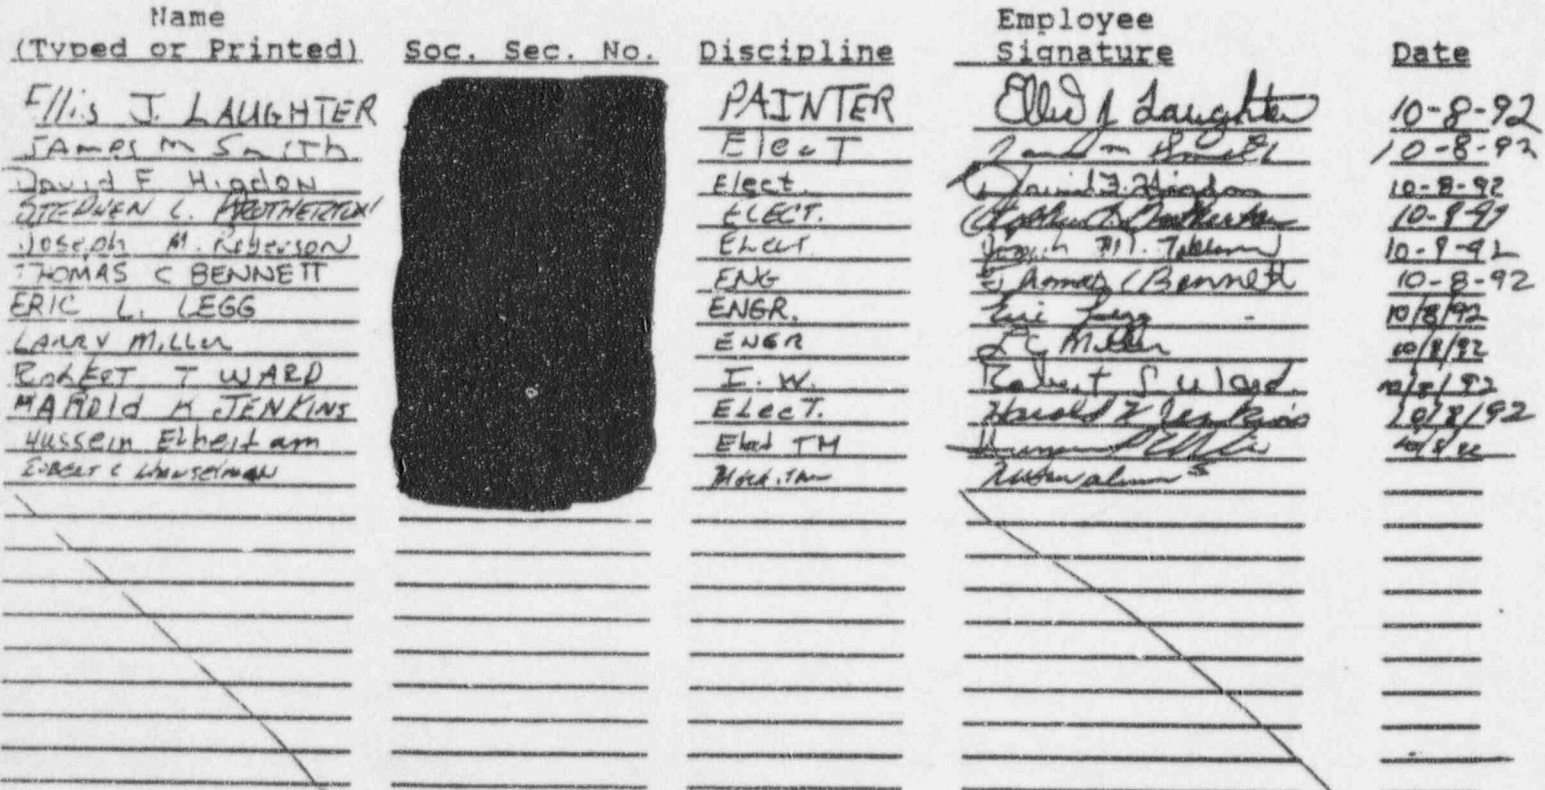 Name Employee
(Typed or Printed) Soc. Sec. No. Discipline Signature Date
Ellis J. LAUGHTER PAINTER Ellis J Laughter 10-8-92
James M Smith Elect James m Smith 10-8-92
David F Higdon Elect. David F. Higdon 10-8-92
STEPHEN L. BROTHERTON ELECT. Stephen L. Brotherton
Joseph M. Roberson Elect. Joseph M.
THOMAS C BENNETT ENG Thomas C Bennett 10-8-92
ERIC L. LEGG ENGR. Eric Legg 10/8/92
LARRY MILLER ENGR L C Miller 10/8/92
ROBERT T WARD I. W. Robert T Ward 10/8/92
HAROLD K JENKINS Elect. Harold K Jenkins 10/8/92
Hussein Elect TM